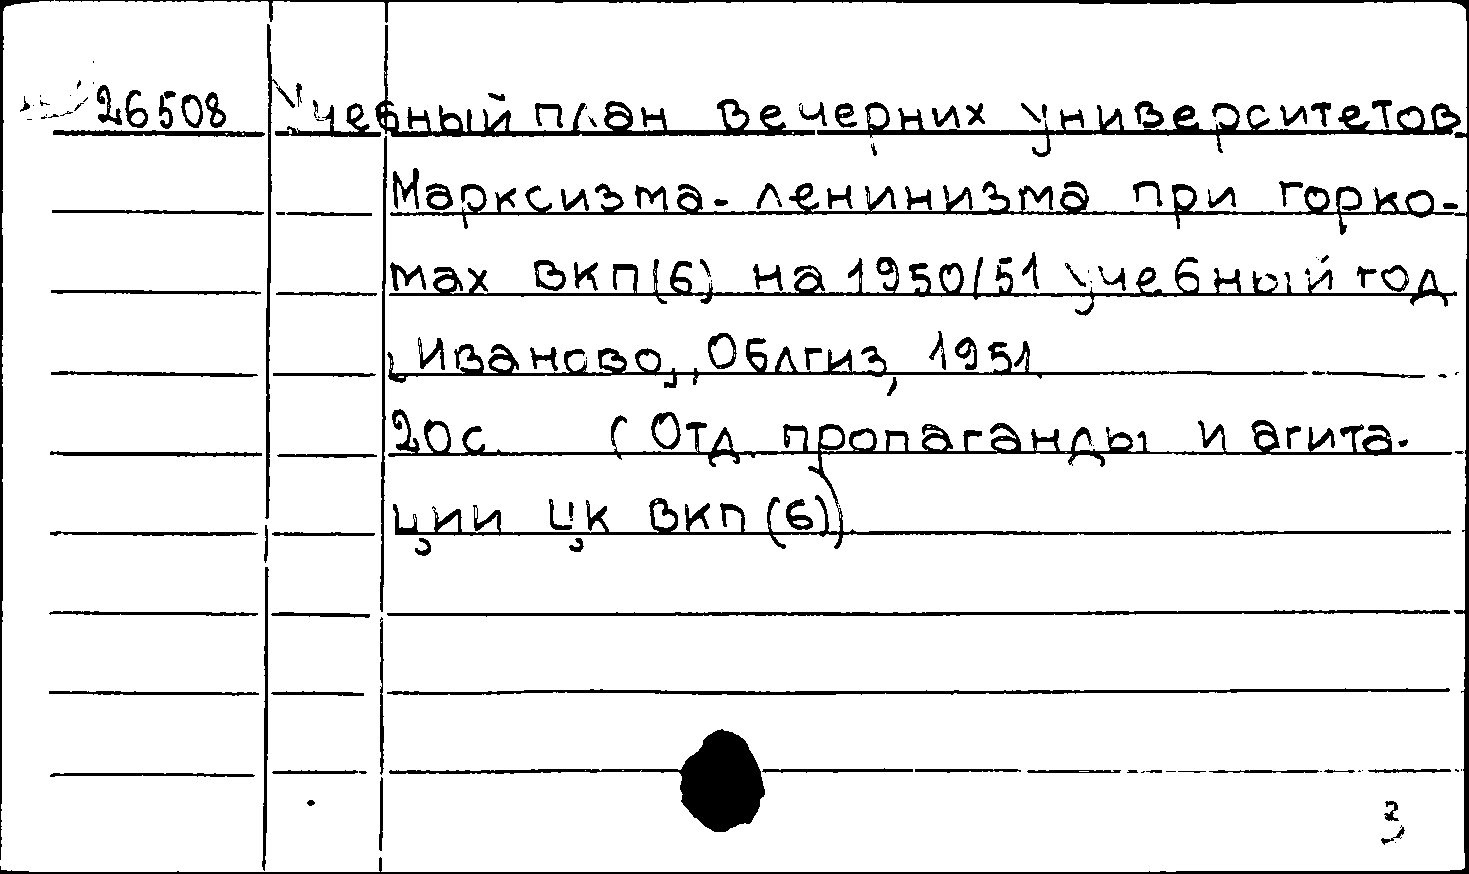 26508 Учебный план вечерних университетов
Марксизма-ленинизма при горко-
мах ВКП(б) на 1950/51 учебный год
Иваново, Облгиз, 1951.
20с. (Отд. пропаганды и агита-
ции ЦК ВКП(б))
3